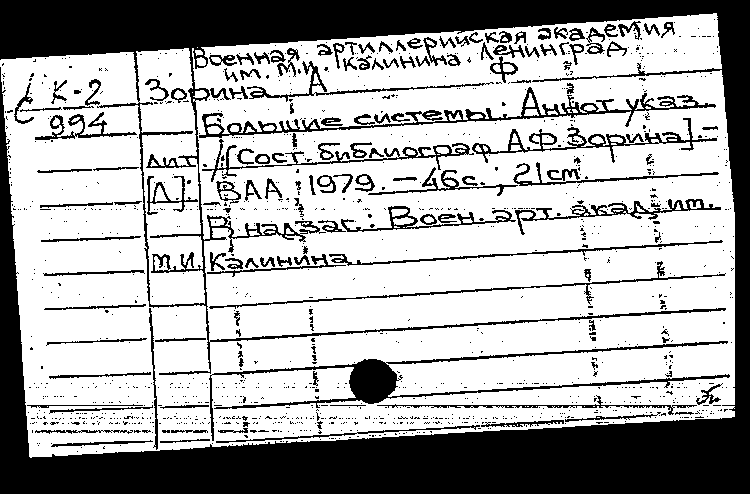 Военная артиллерийская академия
им. М.И. Калинина. Ленинград
К-2 Зорина А Ф
994 Большие системы: Аннот. указ.
лит. / [Сост. библиограф А.Ф. Зорина]. –
[Л.]: ВАА, 1979. – 46с.; 21см.
В надзаг.: Воен. арт. акад. им.
М.И. Калинина.